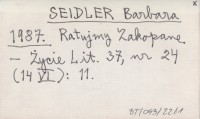 SEIDLER Barbara
x
1987. Ratujmy Zakopane
- Życie Lit. 37, nr 24
(14 VI): 11.
BT/043/2211